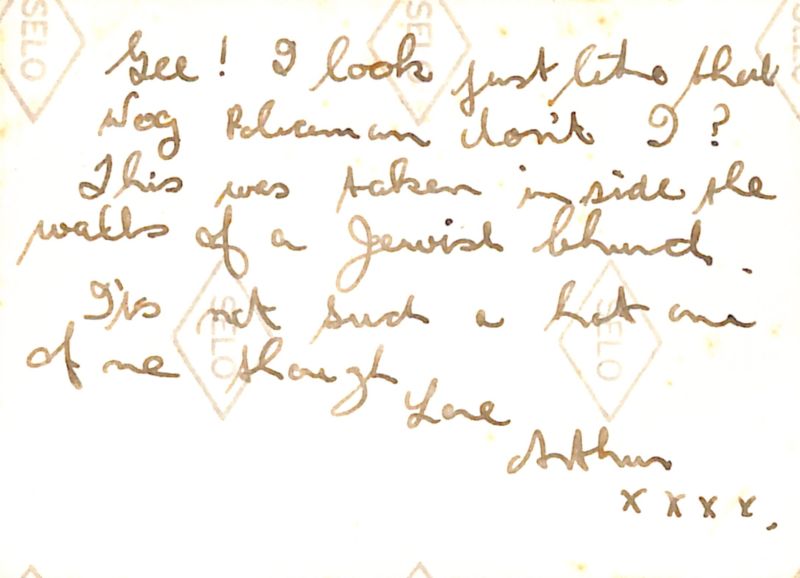 Gee! I look just like that
Wog Policeman don't I?
This was taken inside the
walls of a Jewish
It's not such a hot one
of me though
Love
Arthur
x x x x.
SELO
SELO
SELO
SELO
SELO